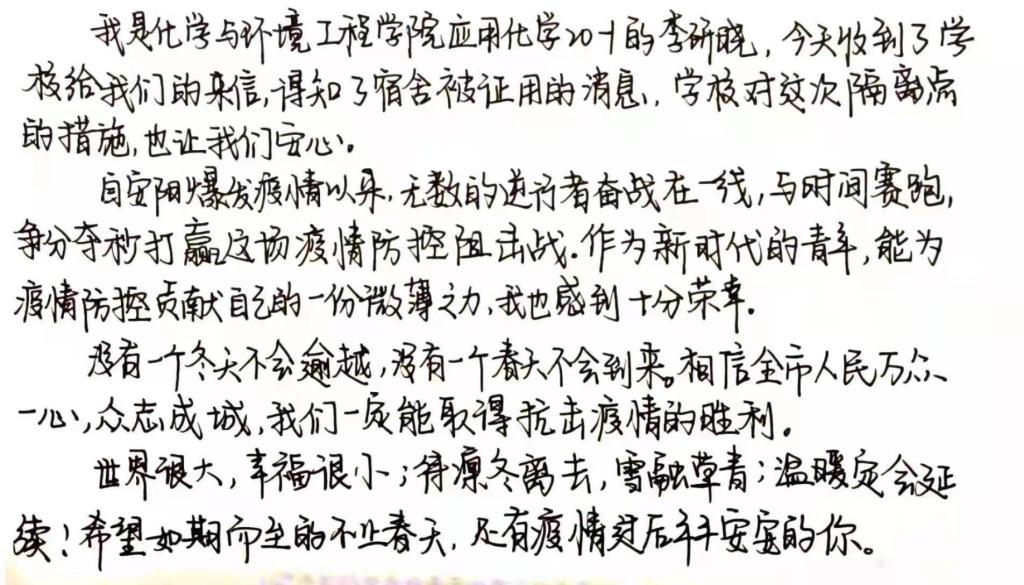 我是化学与环境工程学院应用化学20-1的李研晓，今天收到了学
校给我们的来信，得知了宿舍被征用的消息，学校对这次隔离点
的措施，也让我们安心。
自安阳爆发疫情以来，无数的逆行者奋战在一线，与时间赛跑，
争分夺秒打赢这场疫情防控阻击战.作为新时代的青年，能为
疫情防控贡献自己的一份微薄之力，我也感到十分荣幸.
没有一个冬天不会逾越，没有一个春天不会到来。相信全市人民万众
一心，众志成城，我们一定能取得抗击疫情的胜利。
世界很大，幸福很小；待凛冬离去，雪融草青；温暖定会延
续！希望如期而至的不止春天，还有疫情过后平平安安的你。